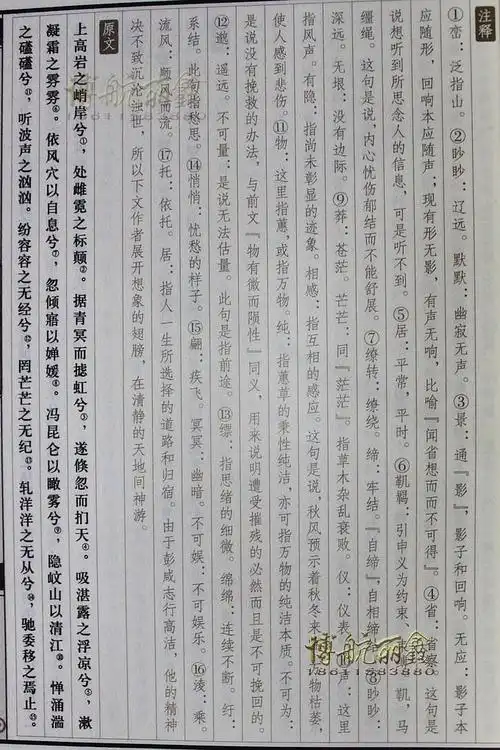 注释
①峦：泛指山。②眇眇：辽远。默默：幽寂无声。③景：通『影』，影子和回响。无应：影子本
应随形，回响本应随声；现有形无影，有声无响，比喻『闻省想而而不可得』。④省：省察。这句是
说想听到所思念人的信息，可是听不到。⑤居：平常，平时。⑥羁：引申义为约束、羁，马
缰绳。这句是说，内心忧伤郁结而不能舒展。⑦缭转：缭绕。缔：牢结。『自缔』，自相缔结。⑧眇眇：
深远。无垠：没有边际。⑨莽：苍茫。芒芒：同『茫茫』。指草木杂乱衰败。仪：仪表。声：这里
指风声。有隐：指尚未彰显的迹象。相感：指互相的感应。这句是说，秋风预示着秋冬来物枯萎，
使人感到悲伤。⑪物：这里指蕙，或指万物。纯：指蕙草的秉性纯洁，亦可指万物的纯洁本质。不可为：
是说没有挽救的办法，与前文『物有微而陨性』同义，用来说明遭受摧残的必然而且是不可挽回的。
⑫邈：遥远。不可量：是说无法估量。此句是指前途。⑬缥：指思绪的细微。绵绵：连续不断。纡：
系结。此句指愁思。⑭悄悄：忧愁的样子。⑮翩：疾飞。冥冥：幽暗。不可娱：不可娱乐。⑯凌：乘。
流风：顺风而流。⑰托：依托。居：指人一生所选择的道路和归宿。由于彭咸志行高洁，他的精神
决不致沉沦浊世，所以下文作者展开想象的翅膀，在清静的天地间神游。
原文
上高岩之峭岸兮①，处雌霓之标颠②。据青冥而摅虹兮③，遂倏忽而扪天④。吸湛露之浮凉兮⑤，漱
凝霜之雰雰⑥。依风穴以自息兮⑦，忽倾寤以婵媛⑧。冯昆仑以瞰雾兮⑨，隐岷山以清江⑩。惮涌湍
之礚礚兮⑪，听波声之汹汹。纷容容之无经兮⑫，罔芒芒之无纪⑬。轧洋洋之无从兮⑭，驰委移之焉止⑮。
博航丽鑫
18611583880
博航丽鑫
18611583880